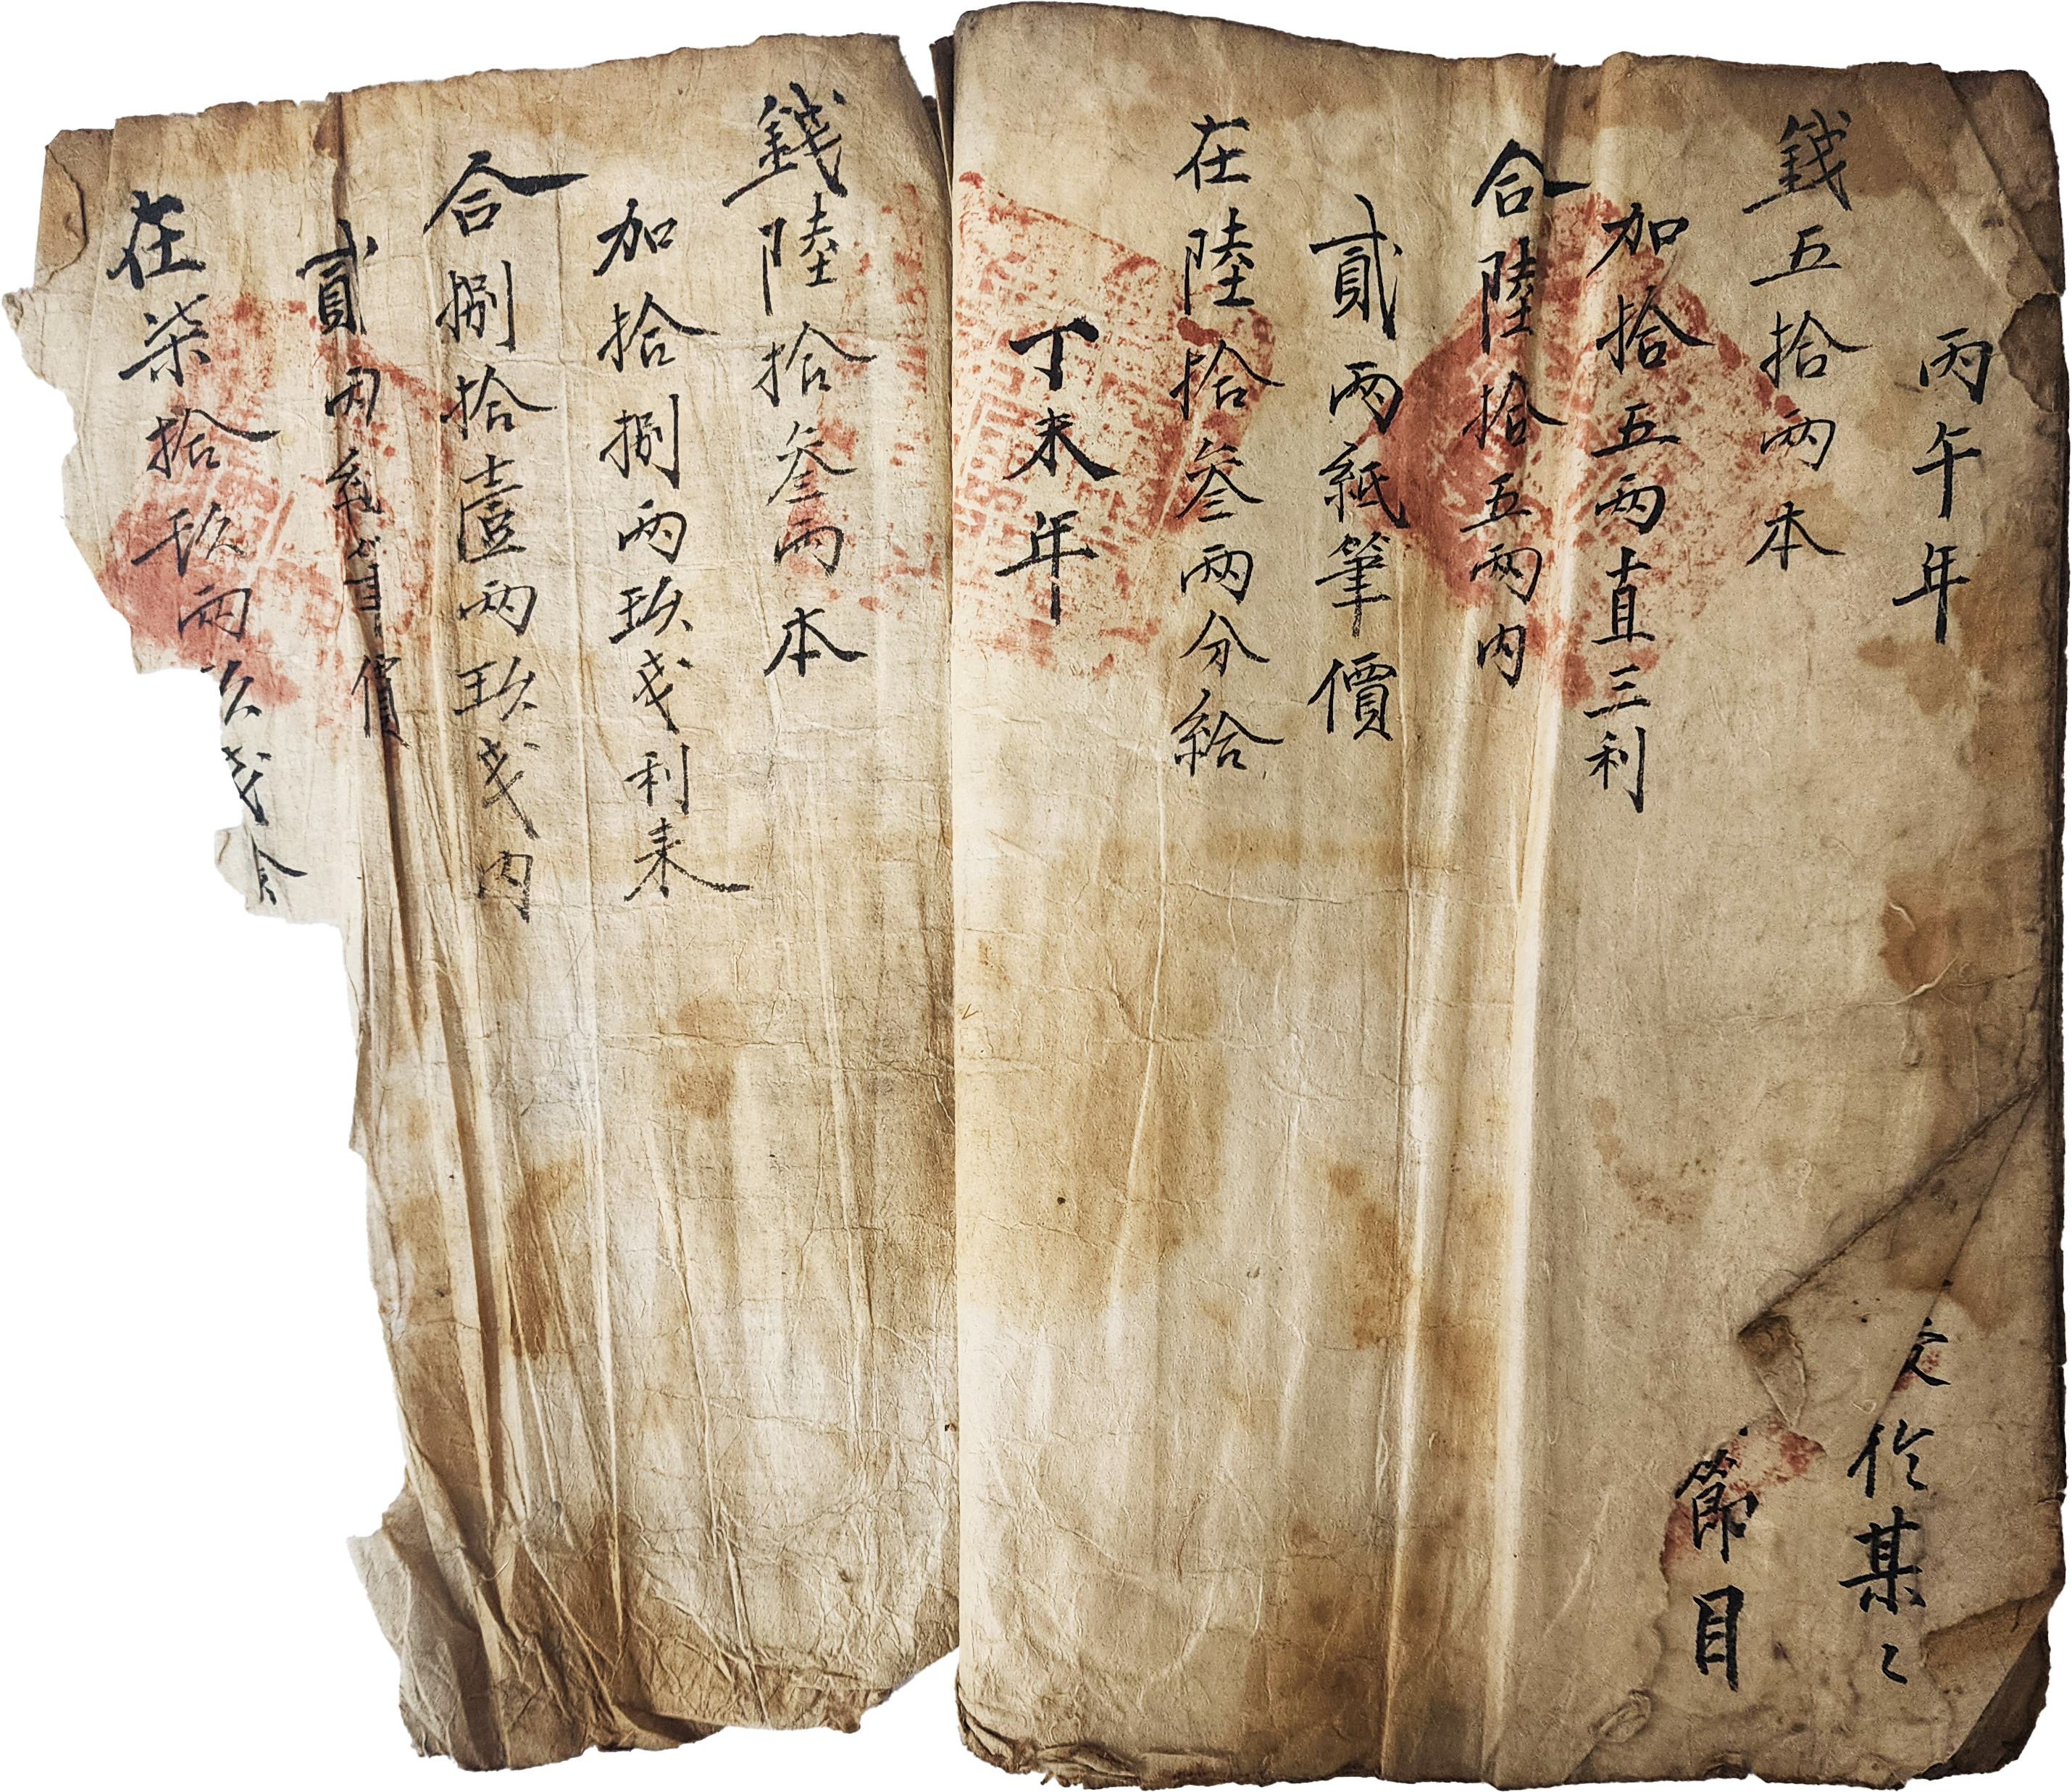 丙午年
錢五拾兩本
加拾五兩直三利
合陸拾五兩內
貳兩紙筆價
在陸拾叄兩分給
丁未年
錢陸拾叄兩本
加拾捌兩玖戔利耒
合捌拾壹兩玖戔內
貳兩紙筆價
在柒拾玖兩玖戔
於某〻
節目